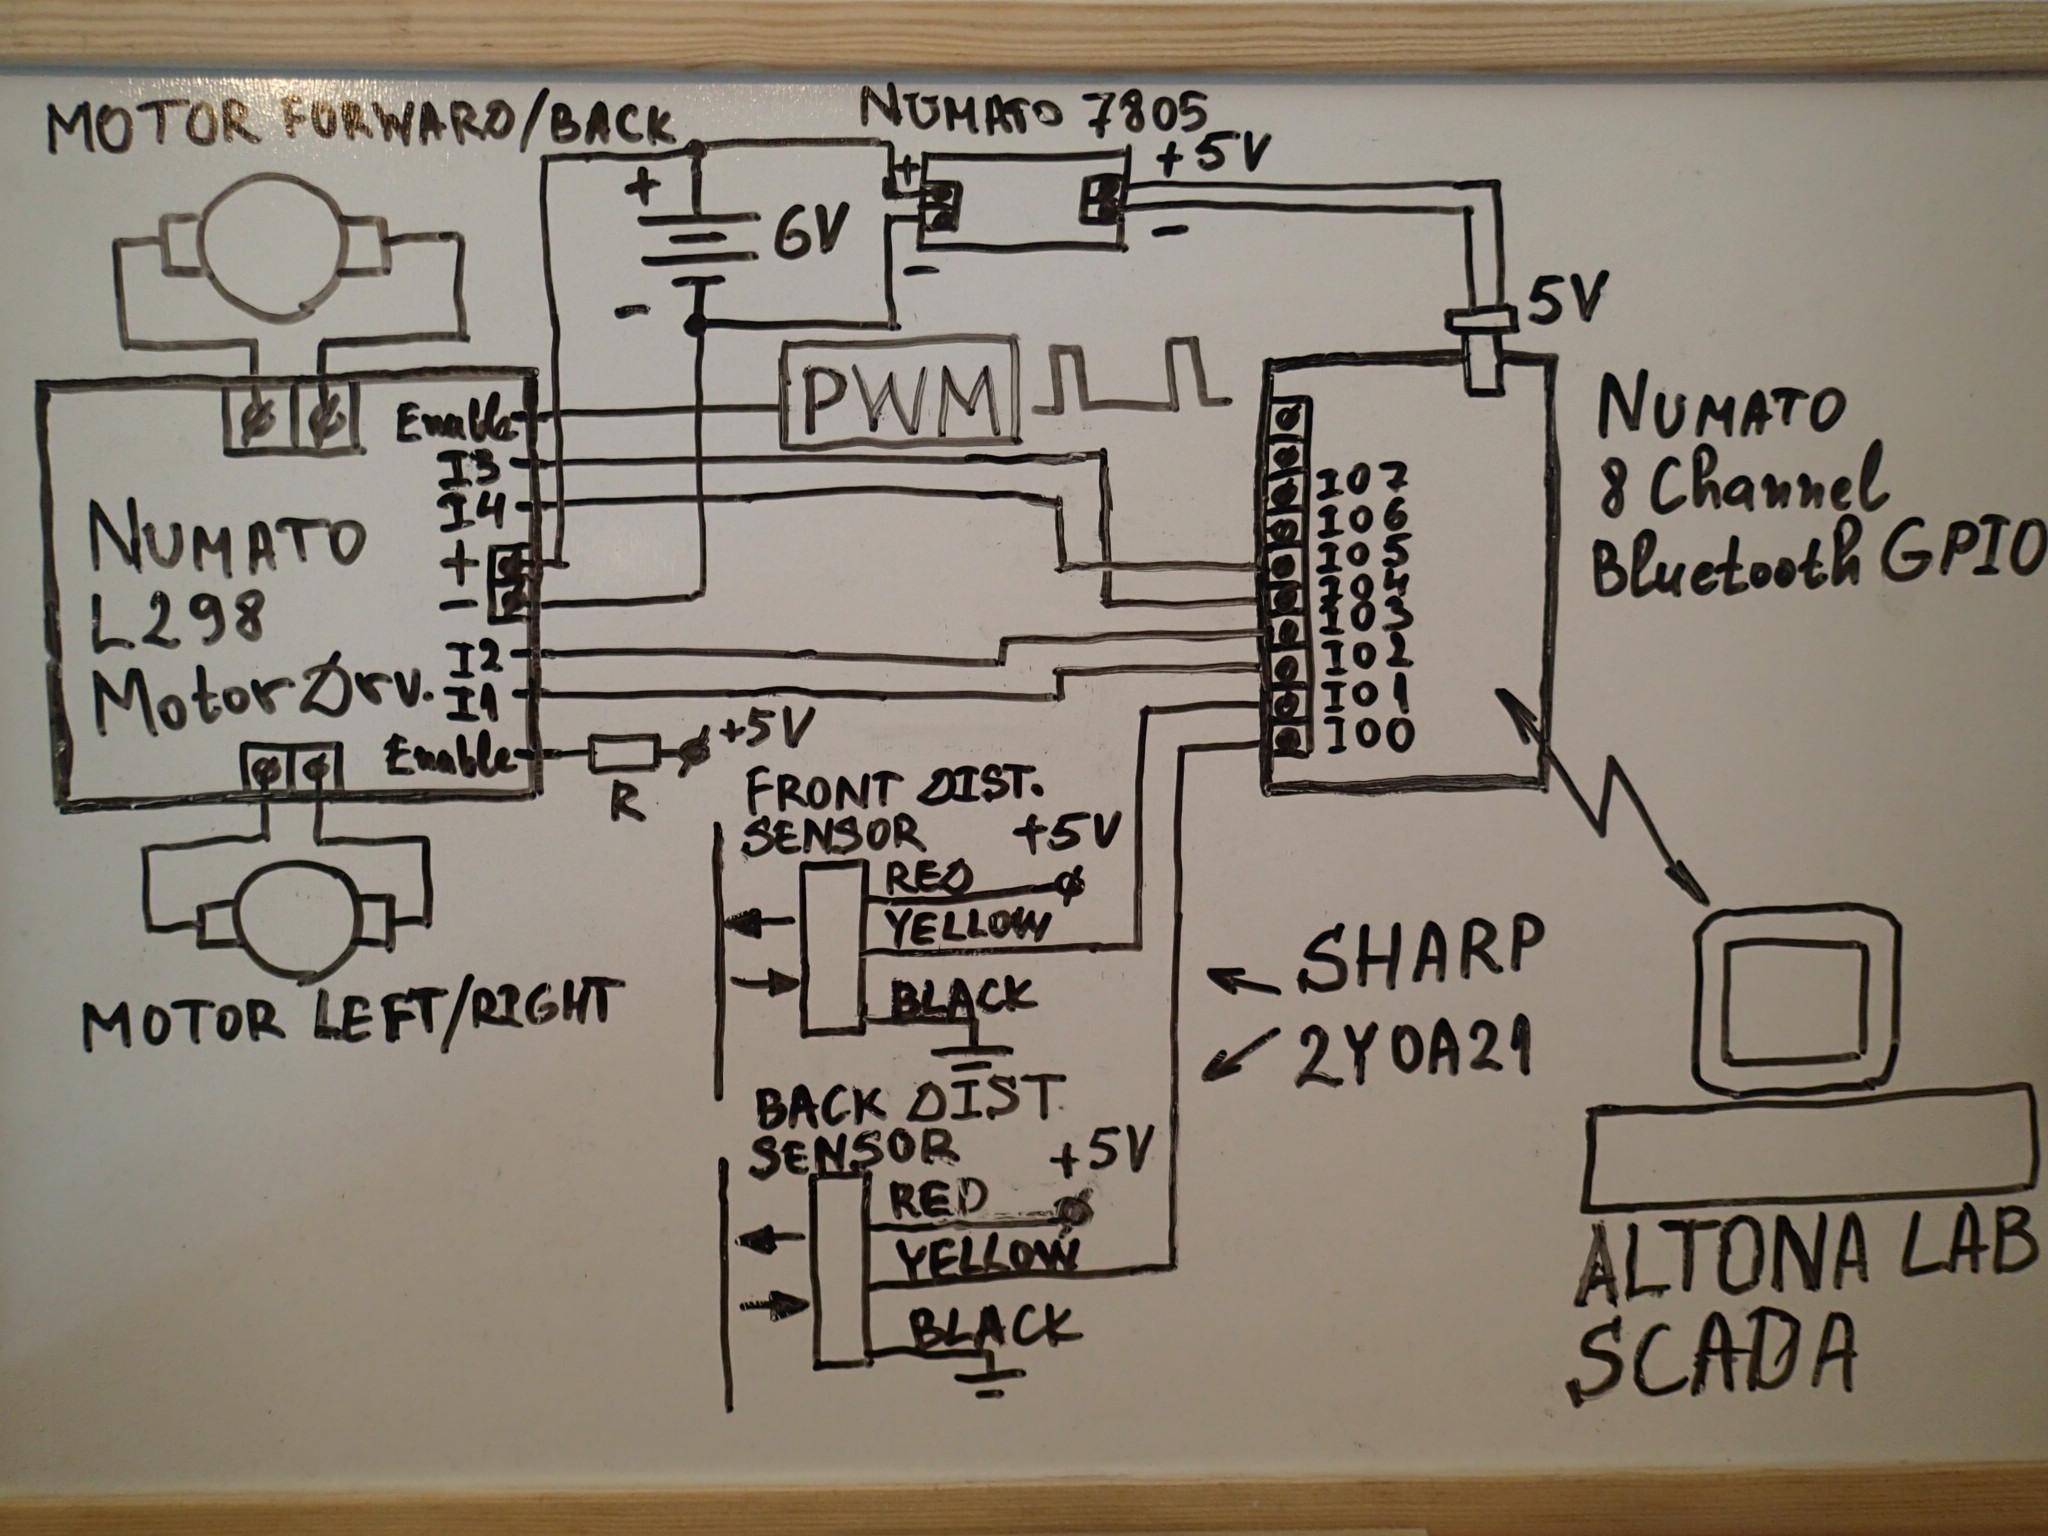 MOTOR FORWARD/BACK
NUMATO 7805
+
6V
-
+
-
+5V
-
5V
PWM
Enable
I3
I4
+
-
I2
I1
Enable
NUMATO
L298
Motor Drv.
+5V
R
MOTOR LEFT/RIGHT
IO7
IO6
IO5
IO4
IO3
IO2
IO1
IO0
NUMATO
8 Channel
Bluetooth GPIO
FRONT DIST.
SENSOR
+5V
RED
YELLOW
BLACK
BACK DIST.
SENSOR
+5V
RED
YELLOW
BLACK
SHARP
2Y0A21
ALTONA LAB
SCADA